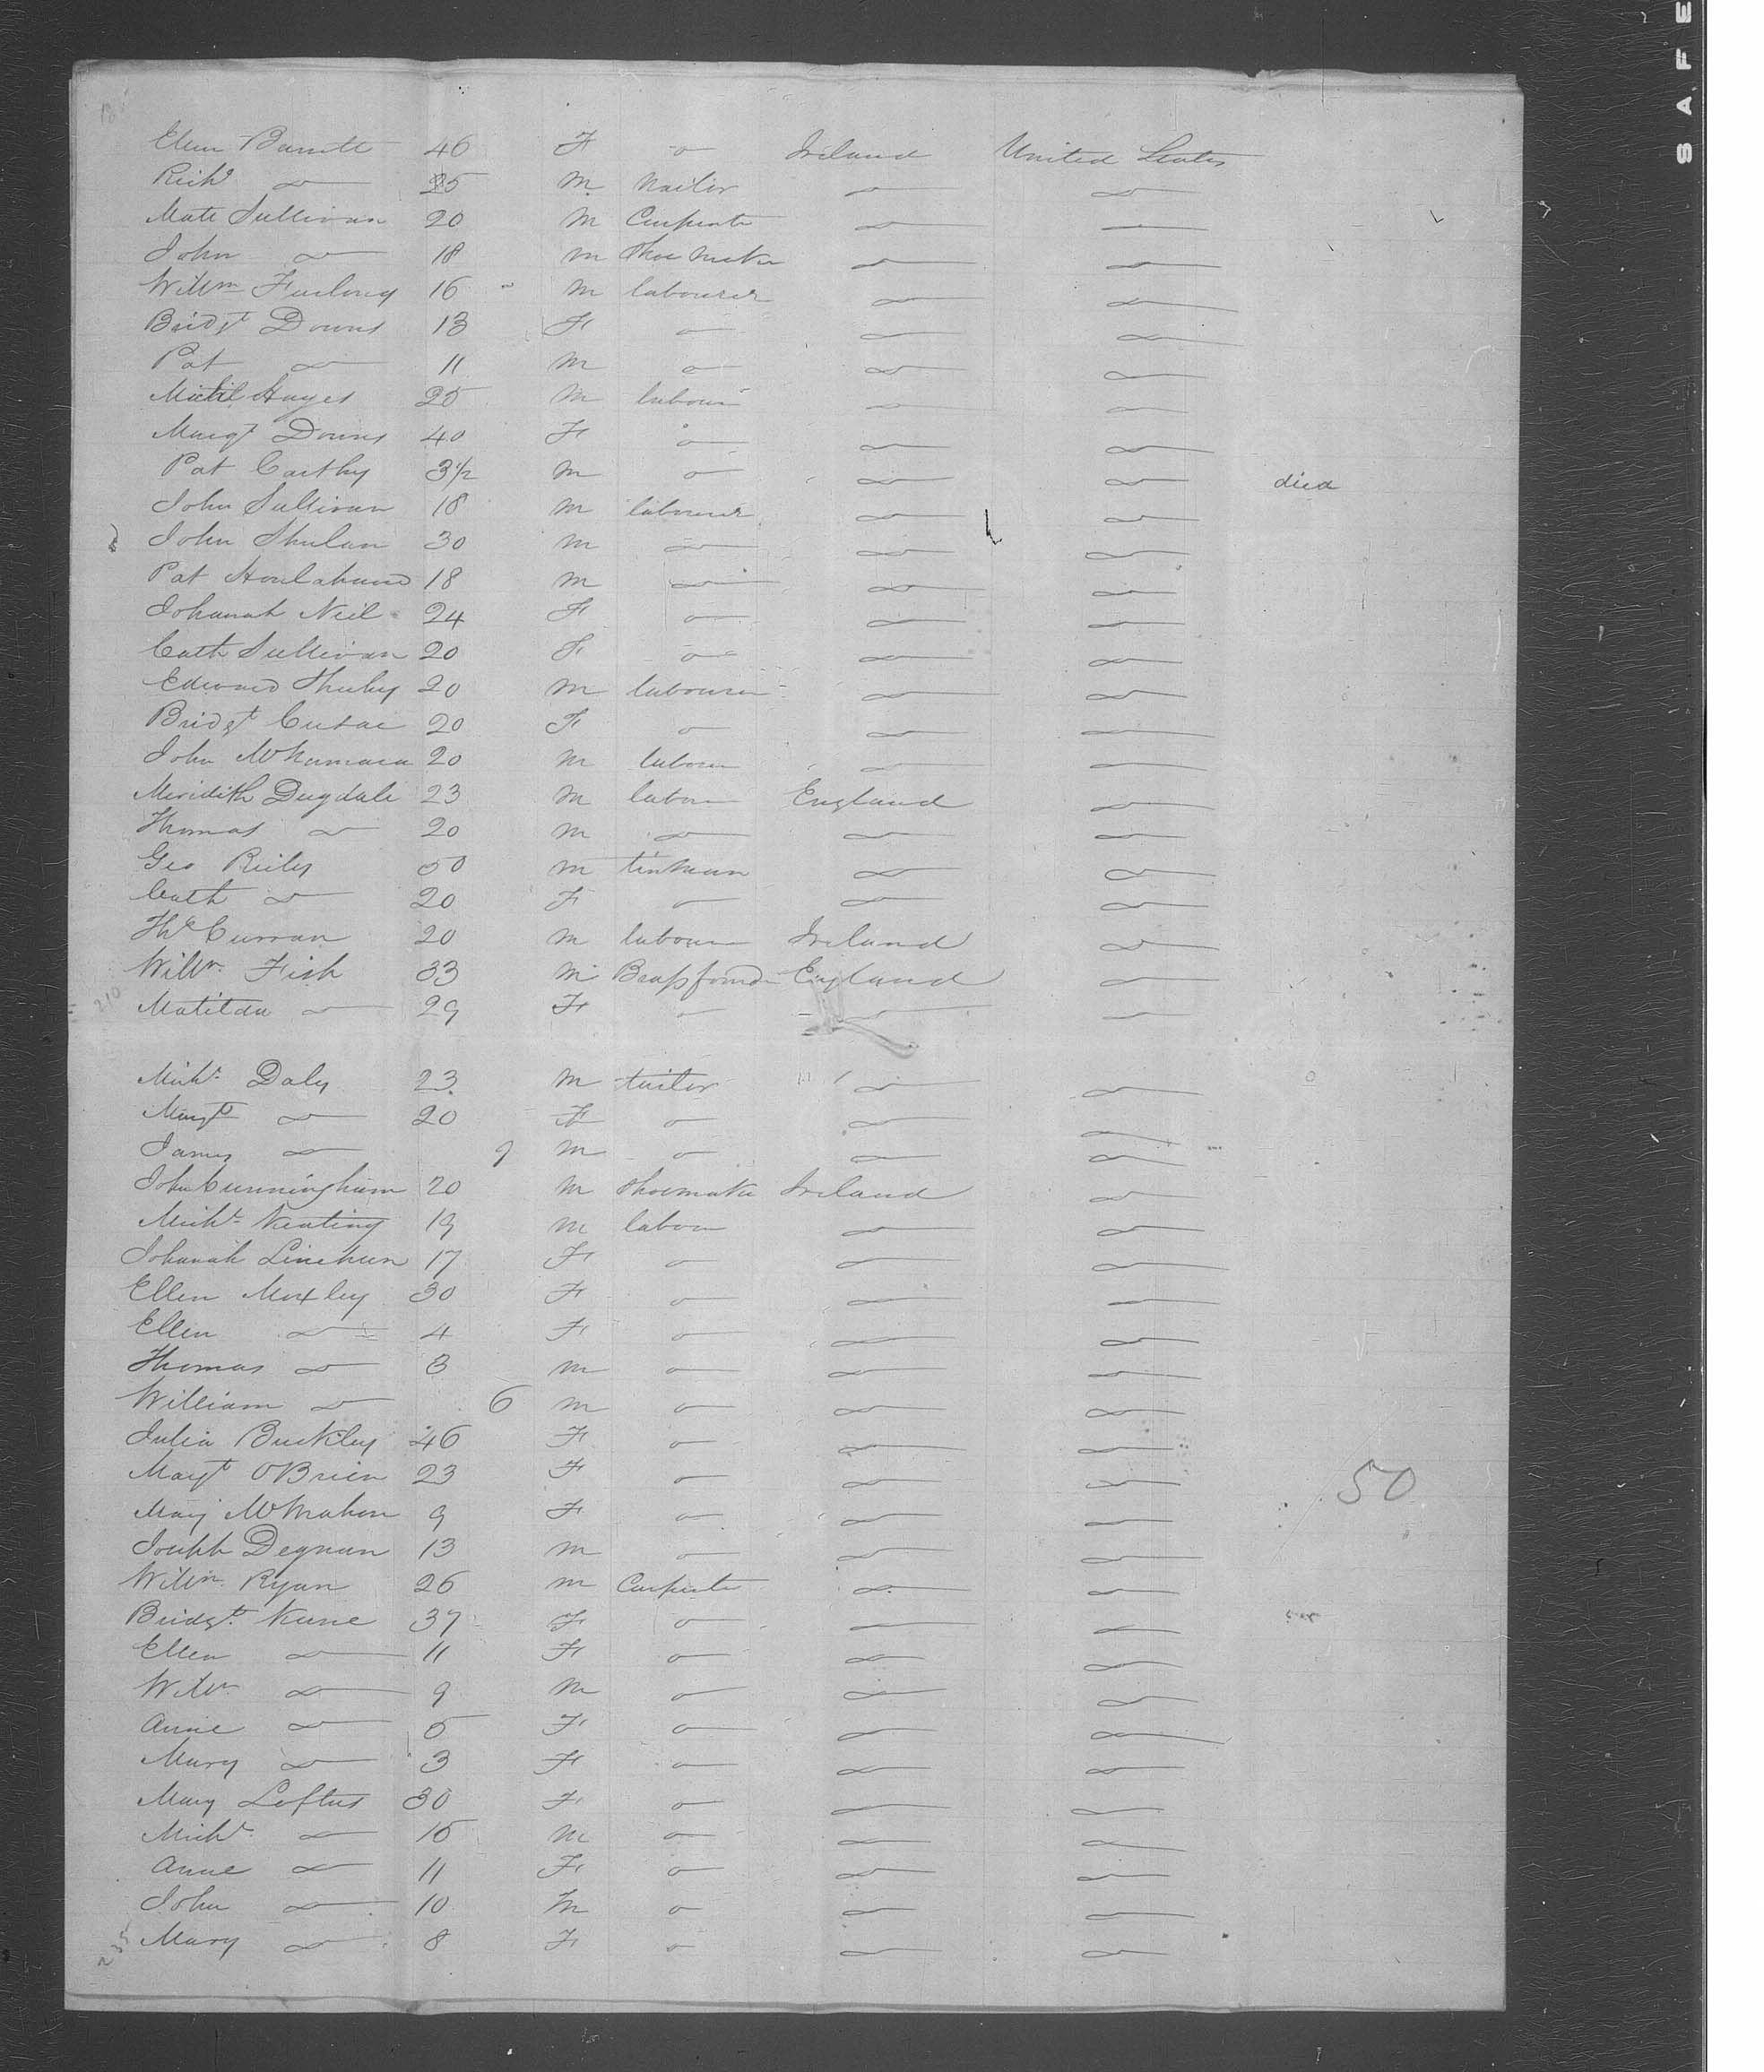 Ellen Barrett 46 F " Ireland United States
Richd do 25 M Nailor do do
Matt Sullivan 20 M Carpenter do do
John do 18 M Shoe Maker do do
Willm Furlong 16 M labourer do do
Bridgt Downs 13 F " do do
Pat do 11 M " do do
Michl Hayes 25 M labour do do
Margt Downs 40 F " do do
Pat Carthy 3½ M " do do died
John Sullivan 18 M labourer do do
John 30 M do do do
Pat Houlahand 18 M do do do
Johanah Neil 24 F " do do
Cath Sullivan 20 F " do do
Edward 20 M labourer do do
Bridgt 20 F " do do
John McNamara 20 M labour do do
Meridith Dugdale 23 M labour England do
Thomas do 20 M do do do
Geo Reily 50 M tinman do do
Cath do 20 F " do do
Ths Curran 20 M labour Ireland do
Willm Fish 33 M Brassfound England do
Matilda do 29 F " do do
210
Michl Daly 23 M tailor do do
Margt do 20 F " do do
James do 9 M " do do
John Cunningham 20 M Shoemaker Ireland do
Michl Keating 19 M labour do do
Johanah Linehan 17 F " do do
Ellen Moxley 30 F " do do
Ellen do 4 F " do do
Thomas do 3 M " do do
William do 6 M " do do
Julia Buckley 46 F " do do
Margt OBrien 23 F " do do
50
Mary McMahon 9 F " do do
Joseph Degnan 13 M " do do
Willm Ryan 26 M Carpenter do do
Bridgt Kane 37 F " do do
Ellen do 11 F " do do
Willm do 9 M " do do
Anne do 5 F " do do
Mary do 3 F " do do
Mary Loftus 30 F " do do
Michl do 15 M " do do
Anne do 11 F " do do
John do 10 M " do do
Mary do 8 F " do do
235
SAFE